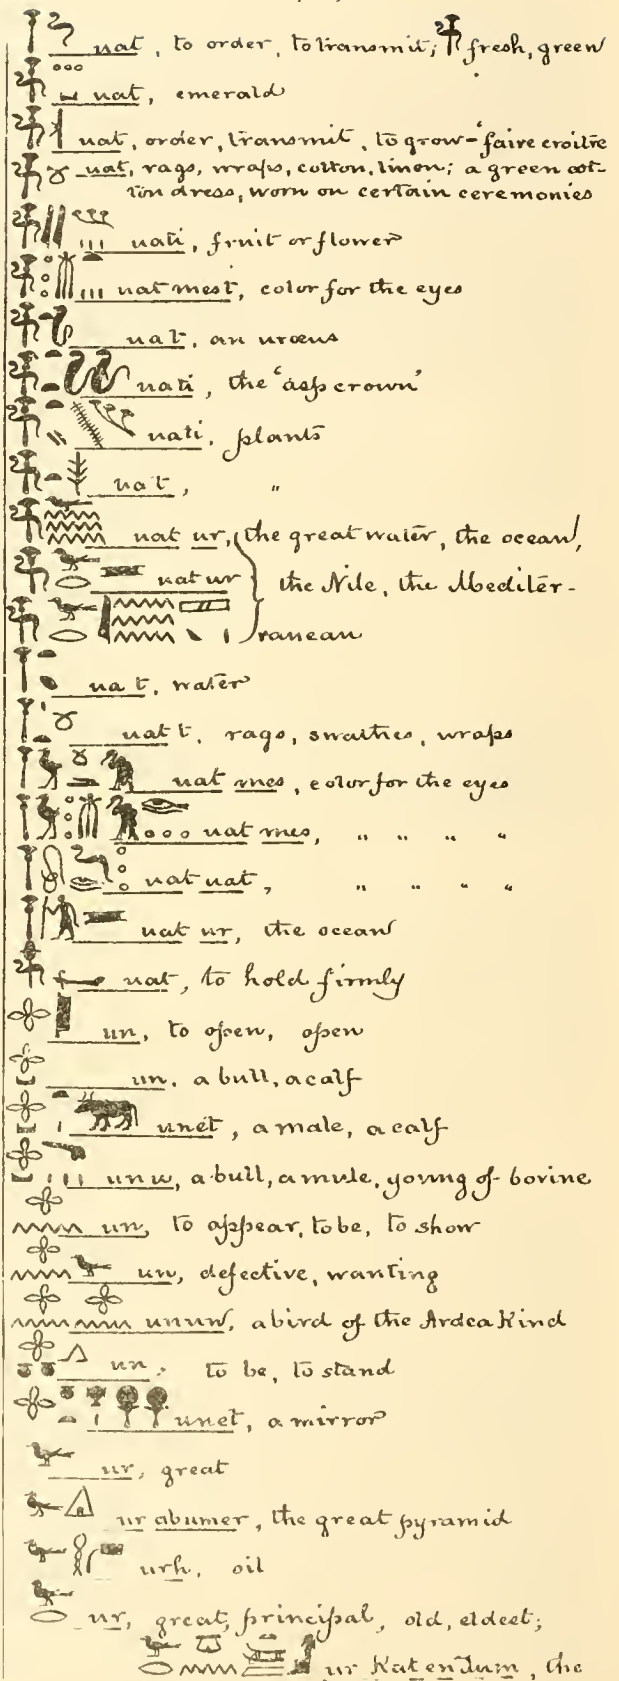 uat, to order, to transmit; fresh, green
uat, emerald
uat, order, transmit, to grow - "faire croitre
uat, rags, wraps, cotton, linen; a green cot-
ton dress, worn on certain ceremonies
uati, fruit or flower
uat mest, color for the eyes
uat, an uræus
uati, the "asp crown"
uati, plants
uat, "
uat ur, the great water, the ocean,
uat ur the Nile, the Mediter-
ranean
uat, water
uat t, rags, swathes, wraps
uat mes, color for the eyes
uat mes, " " " "
uat uat, " " " "
uat ur, the ocean
uat, to hold firmly
un, to open, open
un, a bull, a calf
unet, a male, a calf
unu, a bull, a mule, young of bovine
un, to appear, to be, to show
un, defective, wanting
unun, a bird of the Ardea Kind
un, to be, to stand
unet, a mirror
ur, great
ur abumer, the great pyramid
urh, oil
ur, great, principal, old, eldest;
ur Kat en Tum, the